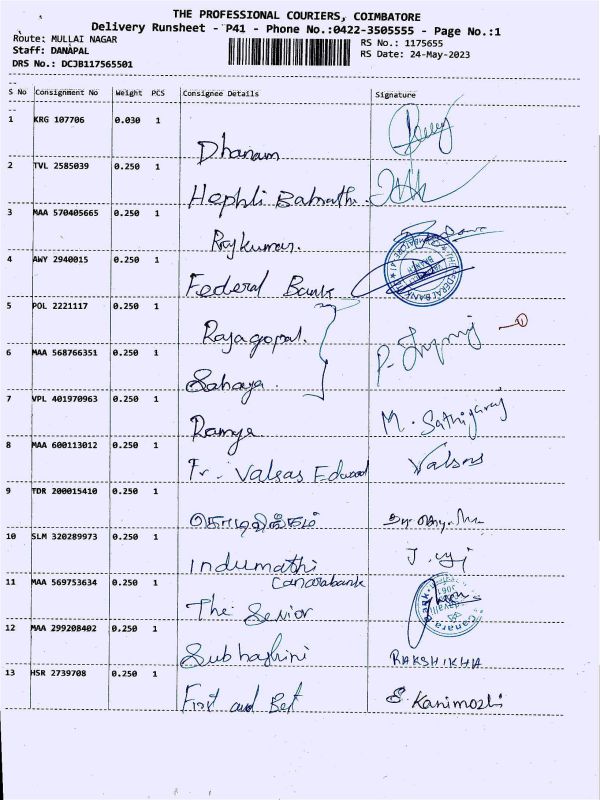 THE PROFESSIONAL COURIERS, COIMBATORE
Delivery Runsheet - P41 - Phone No.:0422-3505555 - Page No.:1
Route: MULLAI NAGAR
RS No.: 1175655
Staff: DANAPAL
RS Date: 24-May-2023
DRS No.: DCJB117565501
S No Consignment No Weight PCS Consignee Details Signature
1 KRG 107706 0.030 1
Dhanam
2 TVL 2585039 0.250 1
Hephli
3 MAA 570405665 0.250 1
Rajkumar.
4 AWY 2940015 0.250 1
Federal Bank
5 POL 2221117 0.250 1
Rajagopal.
6 MAA 568766351 0.250 1
Sahaya.
7 VPL 401970963 0.250 1
Ramya M. Sathiyaraj
8 MAA 600113012 0.250 1
Fr. Valsas Edward Valsas
9 TDR 200015410 0.250 1
10 SLM 320289973 0.250 1
Indumathi
Canarabank
11 MAA 569753634 0.250 1
The Senior
12 MAA 299208402 0.250 1
Subhashini RAKSHIKHA
13 HSR 2739708 0.250 1
First and Best S. Kanimozhi